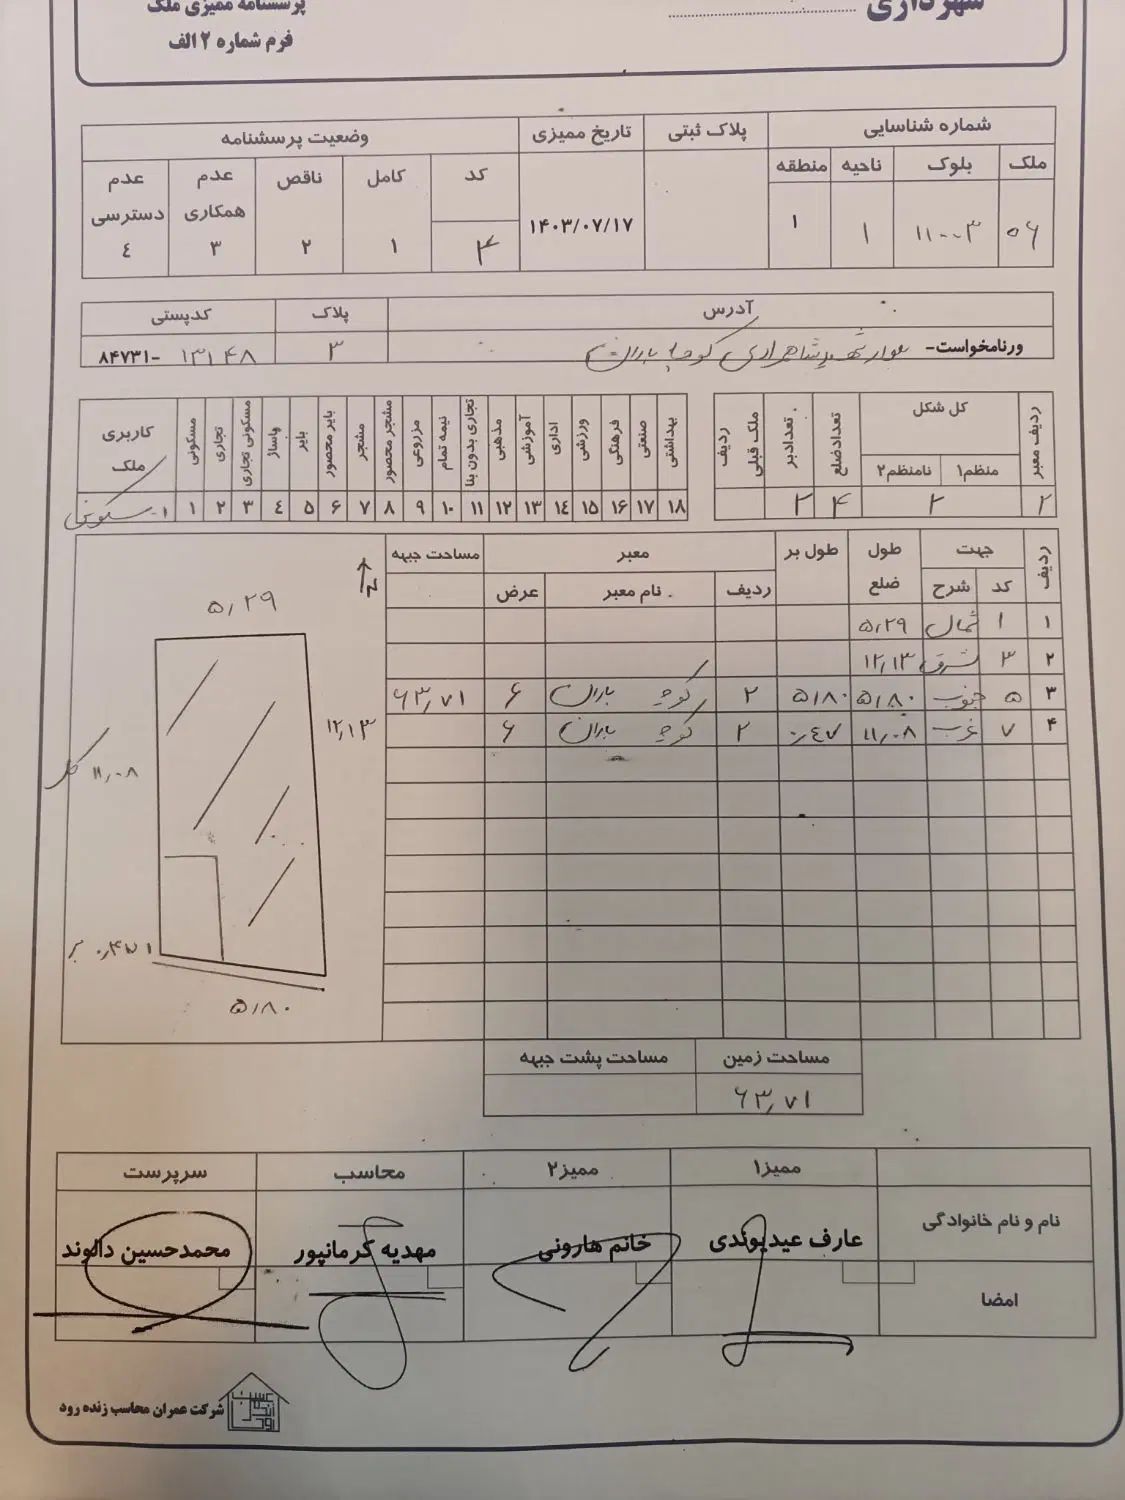 شهرداری ........................
پرسشنامه ممیزی ملک
فرم شماره ۲ الف
شماره شناسایی
پلاک ثبتی
تاریخ ممیزی
وضعیت پرسشنامه
ملک
بلوک
ناحیه
منطقه
کد
کامل
ناقص
عدم همکاری
عدم دسترسی
۵۶
۱۱۰۰۳
۱
۱
۱۴۰۳/۰۷/۱۷
۴
۱
۲
۳
٤
آدرس
پلاک
کدپستی
ورنامخواست- بلوار شهید شاهمرادی کوچه باران
۳
۸۴۷۳۱- ۱۳۱۴۸
ردیف معبر
کل شکل
تعدادضلع
تعدادبر
ملک قبلی
ردیف
منظم۱
نامنظم۲
۲
۲
۴
۲
بهداشتی
صنعتی
فرهنگی
ورزشی
اداری
آموزشی
مذهبی
تجاری بدون بنا
نیمه تمام
مزروعی
مشجر محصور
مشجر
بایر محصور
بایر
پاساژ
مسکونی تجاری
تجاری
مسکونی
کاربری ملک
۱۸ ۱۷ ۱۶ ۱۵ ۱٤ ۱۳ ۱۲ ۱۱ ۱۰ ۹ ۸ ۷ ۶ ۵ ٤ ۳ ۲ ۱
۱- مسکونی
ردیف
جهت
طول ضلع
طول بر
معبر
مساحت جبهه
کد
شرح
ردیف
نام معبر
عرض
۱ ۱ شمال ۵٫۲۹
۲ ۳ شرق ۱۲٫۱۳
۳ ۵ جنوب ۵٫۸۰ ۵٫۸۰ ۲ کوچه باران ۶ ۶۳٫۷۱
۴ ۷ غرب ۱۱٫۰۸ ۰٫٤۷ ۲ کوچه باران ۶
N
۵٫۲۹
۱۲٫۱۳
۱۱٫۰۸ کل
بر
۵٫۸۰
مساحت زمین
مساحت پشت جبهه
۶۳٫۷۱
ممیز۱
ممیز۲
محاسب
سرپرست
نام و نام خانوادگی
عارف عیدیوندی
خانم هارونی
مهدیه کرمانپور
محمدحسین دالوند
امضا
شرکت عمران محاسب زنده رود